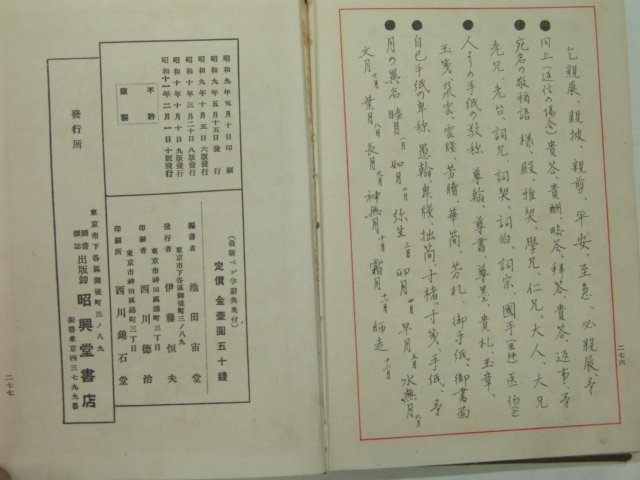 乞親展、親披、親剪、平安、至急、必親展、等
● 同上(返信の場合)貴答、貴酬、略答、拝答、貴答、返事、等
● 宛名の敬称語 様、殿、雅契、學兄、仁兄、大人、大兄
老兄、老台、詞兄、詞契、詞伯、詞宗、國手(医師)医伯(〃)
● 人よりの手紙の敬称 尊翰、尊書、尊墨、貴札、玉章、
玉箋、朶雲、雲牋、芳牘、華简、芳札、御手紙、御書面
● 自己手紙の卑称 愚翰、卑牋、拙简、寸楮、寸箋、手紙、等
● 月の異名 睦月一月 如月二月 弥生三月 卯月四月 早月五月 水無月六月
文月七月 葉月八月 長月九月 神無月十月 霜月十一月 師走十二月
二七六
昭和九年五月十日印刷
昭和九年五月十五日發行
昭和九年十月五日六版發行
昭和十年三月二十日八版發行
昭和十年十月十日九版發行
昭和十一年二月一日十版發行
不許
複製
(最新ペン字辞典奥付)
定價金壹圓五十錢
編書者 池田宙堂
東京市下谷區御徒町三ノ八九
發行者 伊藤恒夫
東京市神田區錦町三丁目
印刷者 西川德治
東京市神田區錦町三丁目
印刷所 西川錦石堂
發行所
東京市下谷區御徒町三ノ八九
圖書
雜誌
出版卸 昭興堂書店
振替東京四三七九九番
二七七